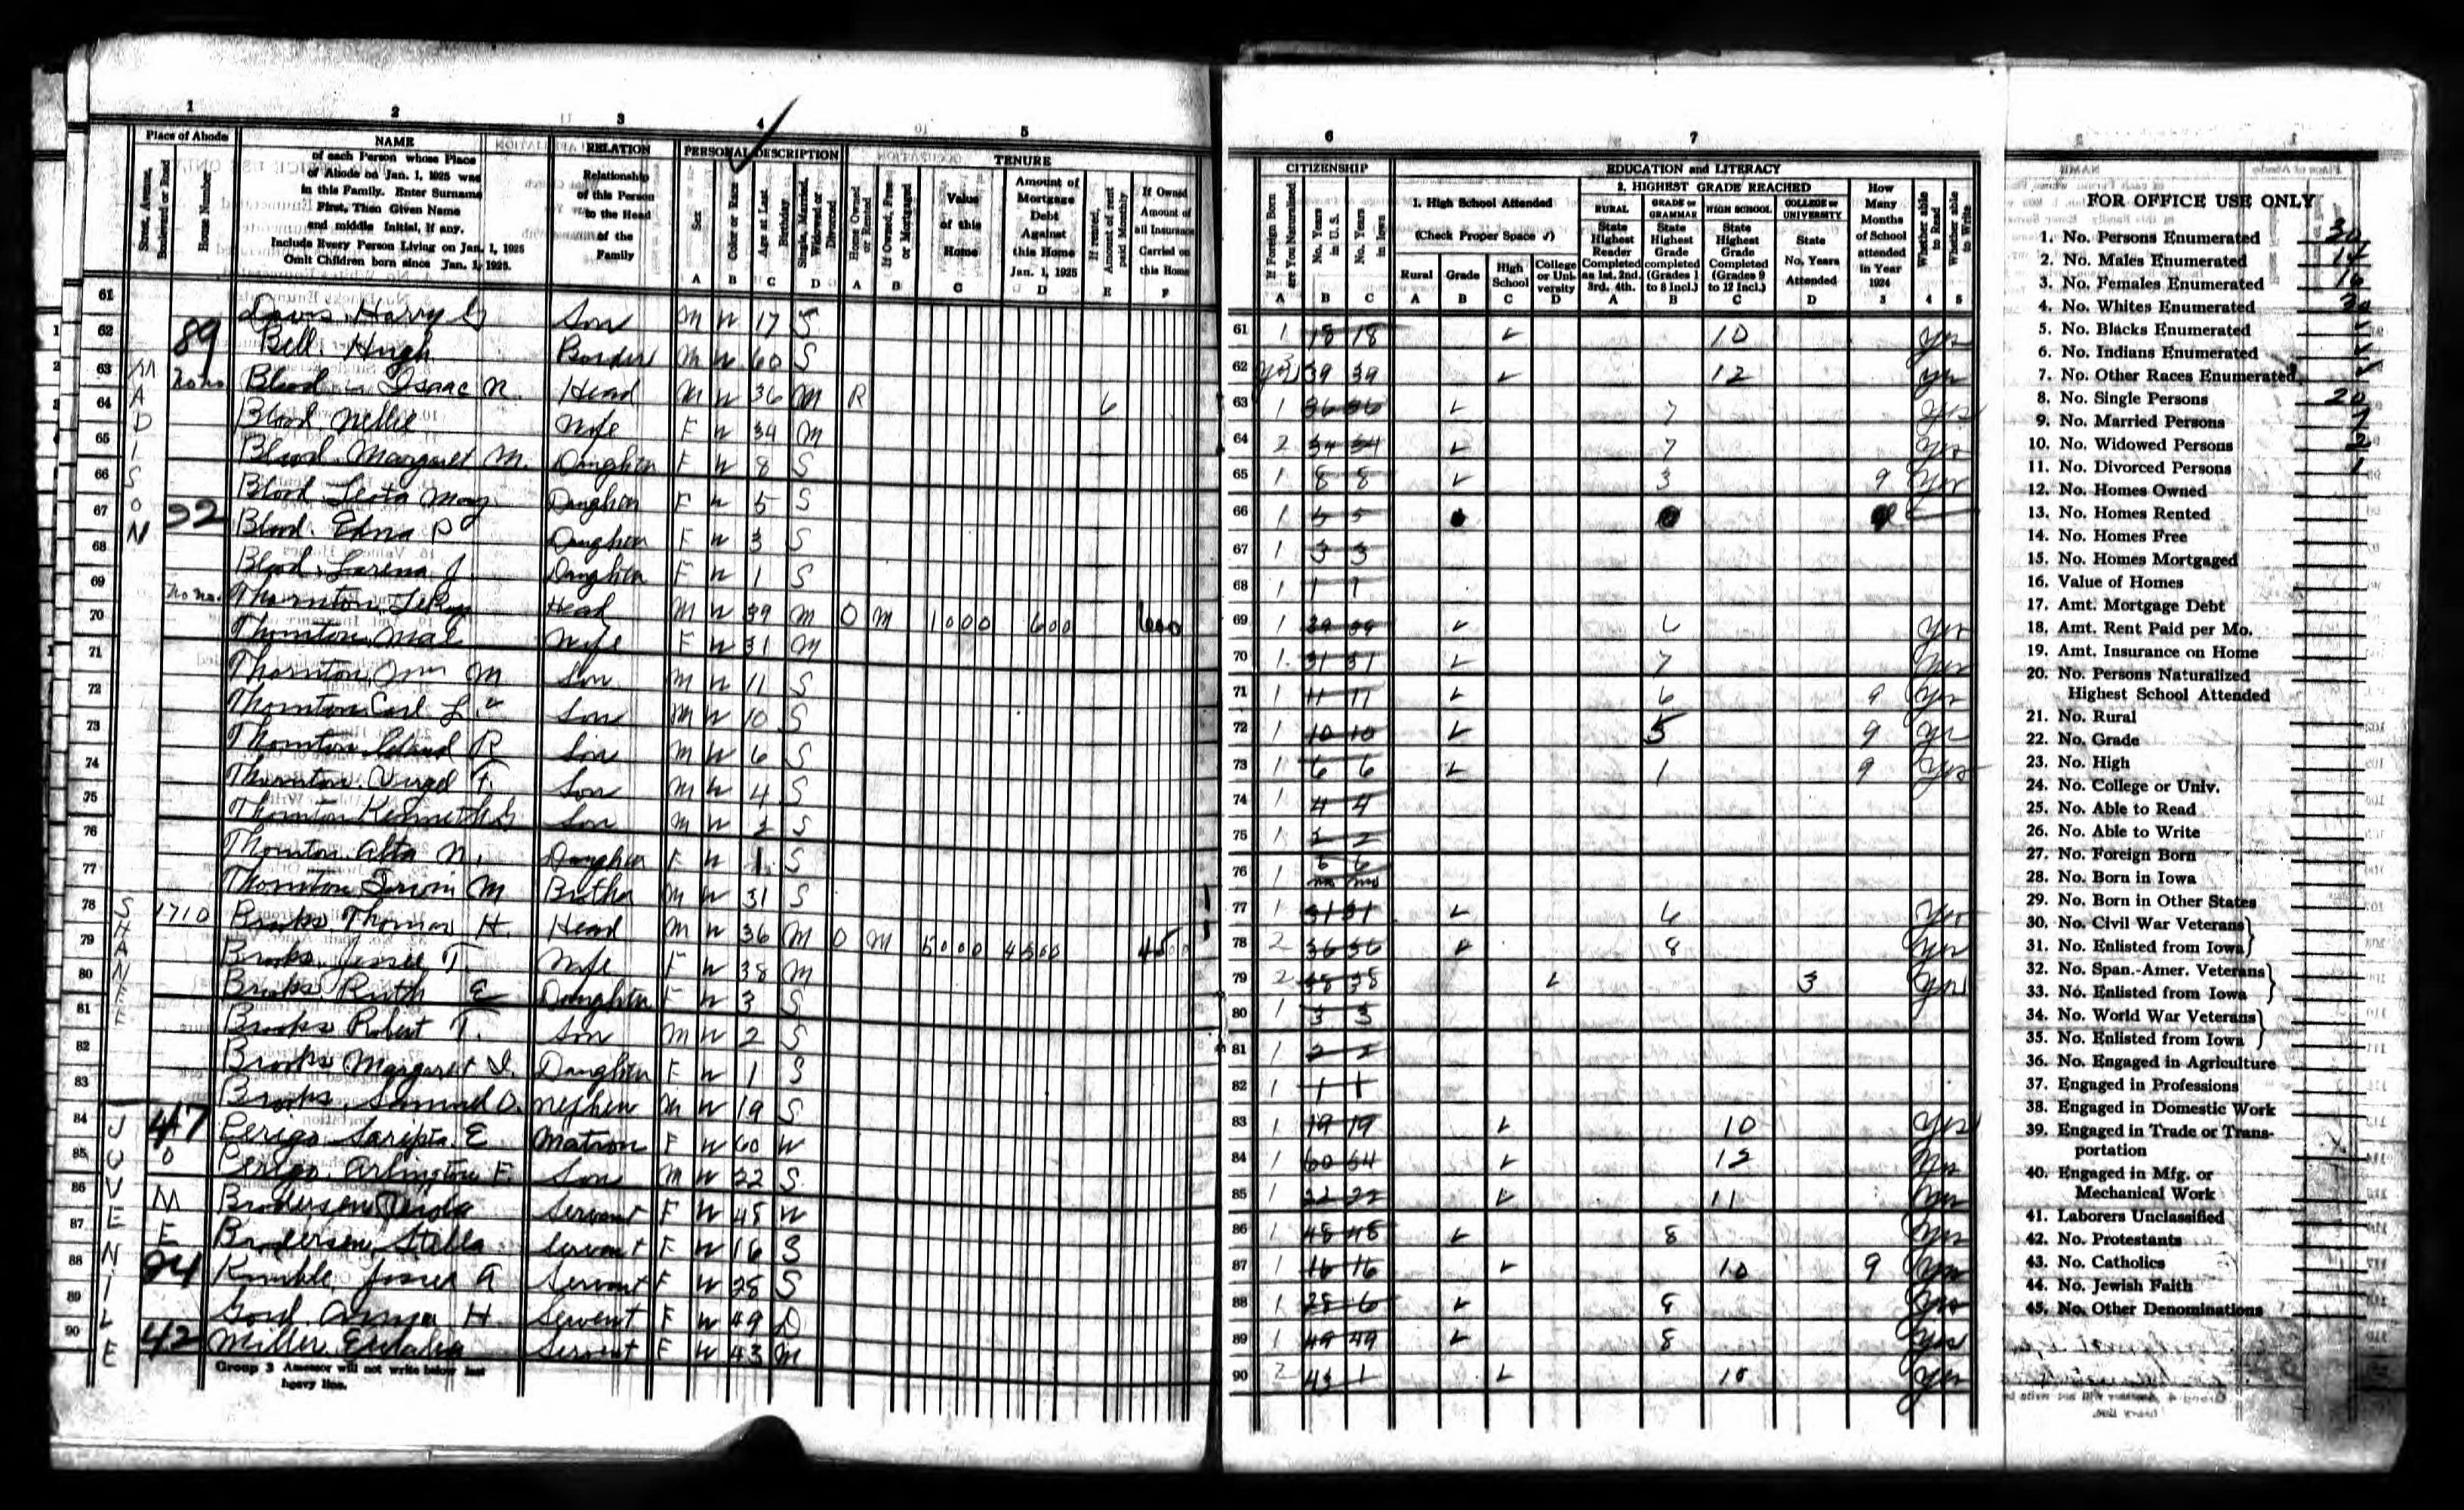 1 2 3 4 5
Place of Abode NAME RELATION PERSONAL DESCRIPTION TENURE
Street, Avenue, Boulevard or Road
House Number
of each Person whose Place
of Abode on Jan. 1, 1925 was
in this Family. Enter Surname
First, Then Given Name
and middle Initial, if any.
Include Every Person Living on Jan. 1, 1925
Omit Children born since Jan. 1, 1925.
Relationship
of this Person
to the Head
of the
Family
Sex
Color or Race
Age at Last Birthday
Single, Married, Widowed or Divorced
Home Owned or Rented
If Owned, Free or Mortgaged
Value
of this
Home
Amount of
Mortgage
Debt
Against
this Home
Jan. 1, 1925
If rented, Amount of rent paid Monthly
If Owned
Amount of
all Insurance
Carried on
this Home
A B C D A B C D E F
61 Davis Harry G Son M W 17 S
62 89 Bell Hugh Border M W 60 S
63 no no Blood Isaac N. Head M W 36 M R 6
64 Blood Nellie Wife F W 34 M
65 Blood Margaret M. Daughter F W 8 S
66 Blood Leota May Daughter F W 5 S
67 Blood Edna P Daughter F W 3 S
68 Blood Larena J. Daughter F W 1 S
69 no no. Thornton LeRoy Head M W 39 M O M 1000 600 600
70 Thornton Mae Wife F W 31 M
71 Thornton Wm M Son M W 11 S
72 Thornton Carl L. Son M W 10 S
73 Thornton Leland R Son M W 6 S
74 Thornton Virgel F. Son M W 4 S
75 Thornton Kenneth G Son M W 2 S
76 Thornton Alta N. Daughter F W 1 S
77 Thornton Irwin M Brother M W 31 S
78 1710 Brooks Thomas H. Head M W 36 M O M 5000 4500 4500
79 Brooks Jessie T. Wife F W 38 M
80 Brooks Ruth E Daughter F W 3 S
81 Brooks Robert T. Son M W 2 S
82 Brooks Margaret I. Daughter F W 1 S
83 Brooks Samuel O. Nephew M W 19 S
84 47 Perigo Saripta E Matron F W 60 W
85 Perigo Arlington F. Son M W 22 S
86 Brodersen F W 45 W Servant
87 Brodersen Stella Servant F W 16 S
88 Kimble Josie A Servant F W 28 S
89 Gord Anna H. Servent F W 49 D
90 42 Miller Eulalia Servent F W 43 M
MADISON
SHAWNEE
JUVENILE
HOME
Group 3 Assessor will not write below last
heavy line.
6 7
CITIZENSHIP EDUCATION and LITERACY
If Foreign Born are You Naturalized
No. Years in U.S.
No. Years in Iowa
1. High School Attended
(Check Proper Space ✓)
Rural Grade High School College or University
2. HIGHEST GRADE REACHED
RURAL
State Highest Reader Completed as 1st. 2nd. 3rd. 4th.
GRADE or GRAMMAR
State Highest Grade completed (Grades 1 to 8 Incl.)
HIGH SCHOOL
State Highest Grade Completed (Grades 9 to 12 Incl.)
COLLEGE or UNIVERSITY
State No. Years Attended
How Many Months of School attended in Year 1924
Whether able to Read
Whether able to Write
A B C A B C D A B C D 3 4 5
61 1 18 18 ✓ 10 Yes
62 39 39 ✓ 12 yes
63 1 36 36 ✓ 7 Yes
64 2 34 34 ✓ 7 Yes
65 1 8 8 ✓ 3 9 Yes
66 1 5 5
67 1 3 3
68 1 1 1
69 1 39 39 ✓ 6 Yes
70 1 31 31 ✓ 7 Yes
71 1 11 11 ✓ 6 9 Yes
72 1 10 10 ✓ 5 9 Yes
73 1 6 6 ✓ 1 9 Yes
74 1 4 4
75 1 2 2
76 1 6 6 mo mo
77 1 31 31 ✓ 6 Yes
78 2 36 36 ✓ 8 Yes
79 2 38 38 ✓ 3 Yes
80 1 3 3
81 1 2 2
82 1 1 1
83 1 19 19 ✓ 10 Yes
84 1 60 54 ✓ 12 Yes
85 1 22 22 ✓ 11 Yes
86 1 45 45 ✓ 8 Yes
87 1 16 16 ✓ 10 9 Yes
88 1 28 6 ✓ 8 Yes
89 1 49 49 ✓ 8 Yes
90 2 43 1 ✓ 10 Yes
FOR OFFICE USE ONLY
1. No. Persons Enumerated 30
2. No. Males Enumerated 14
3. No. Females Enumerated 16
4. No. Whites Enumerated 30
5. No. Blacks Enumerated
6. No. Indians Enumerated
7. No. Other Races Enumerated
8. No. Single Persons 20
9. No. Married Persons 7
10. No. Widowed Persons 2
11. No. Divorced Persons 1
12. No. Homes Owned
13. No. Homes Rented
14. No. Homes Free
15. No. Homes Mortgaged
16. Value of Homes
17. Amt. Mortgage Debt
18. Amt. Rent Paid per Mo.
19. Amt. Insurance on Home
20. No. Persons Naturalized
Highest School Attended
21. No. Rural
22. No. Grade
23. No. High
24. No. College or Univ.
25. No. Able to Read
26. No. Able to Write
27. No. Foreign Born
28. No. Born in Iowa
29. No. Born in Other States
30. No. Civil War Veterans
31. No. Enlisted from Iowa
32. No. Span.-Amer. Veterans
33. No. Enlisted from Iowa
34. No. World War Veterans
35. No. Enlisted from Iowa
36. No. Engaged in Agriculture
37. Engaged in Professions
38. Engaged in Domestic Work
39. Engaged in Trade or Transportation
40. Engaged in Mfg. or
Mechanical Work
41. Laborers Unclassified
42. No. Protestants
43. No. Catholics
44. No. Jewish Faith
45. No. Other Denominations